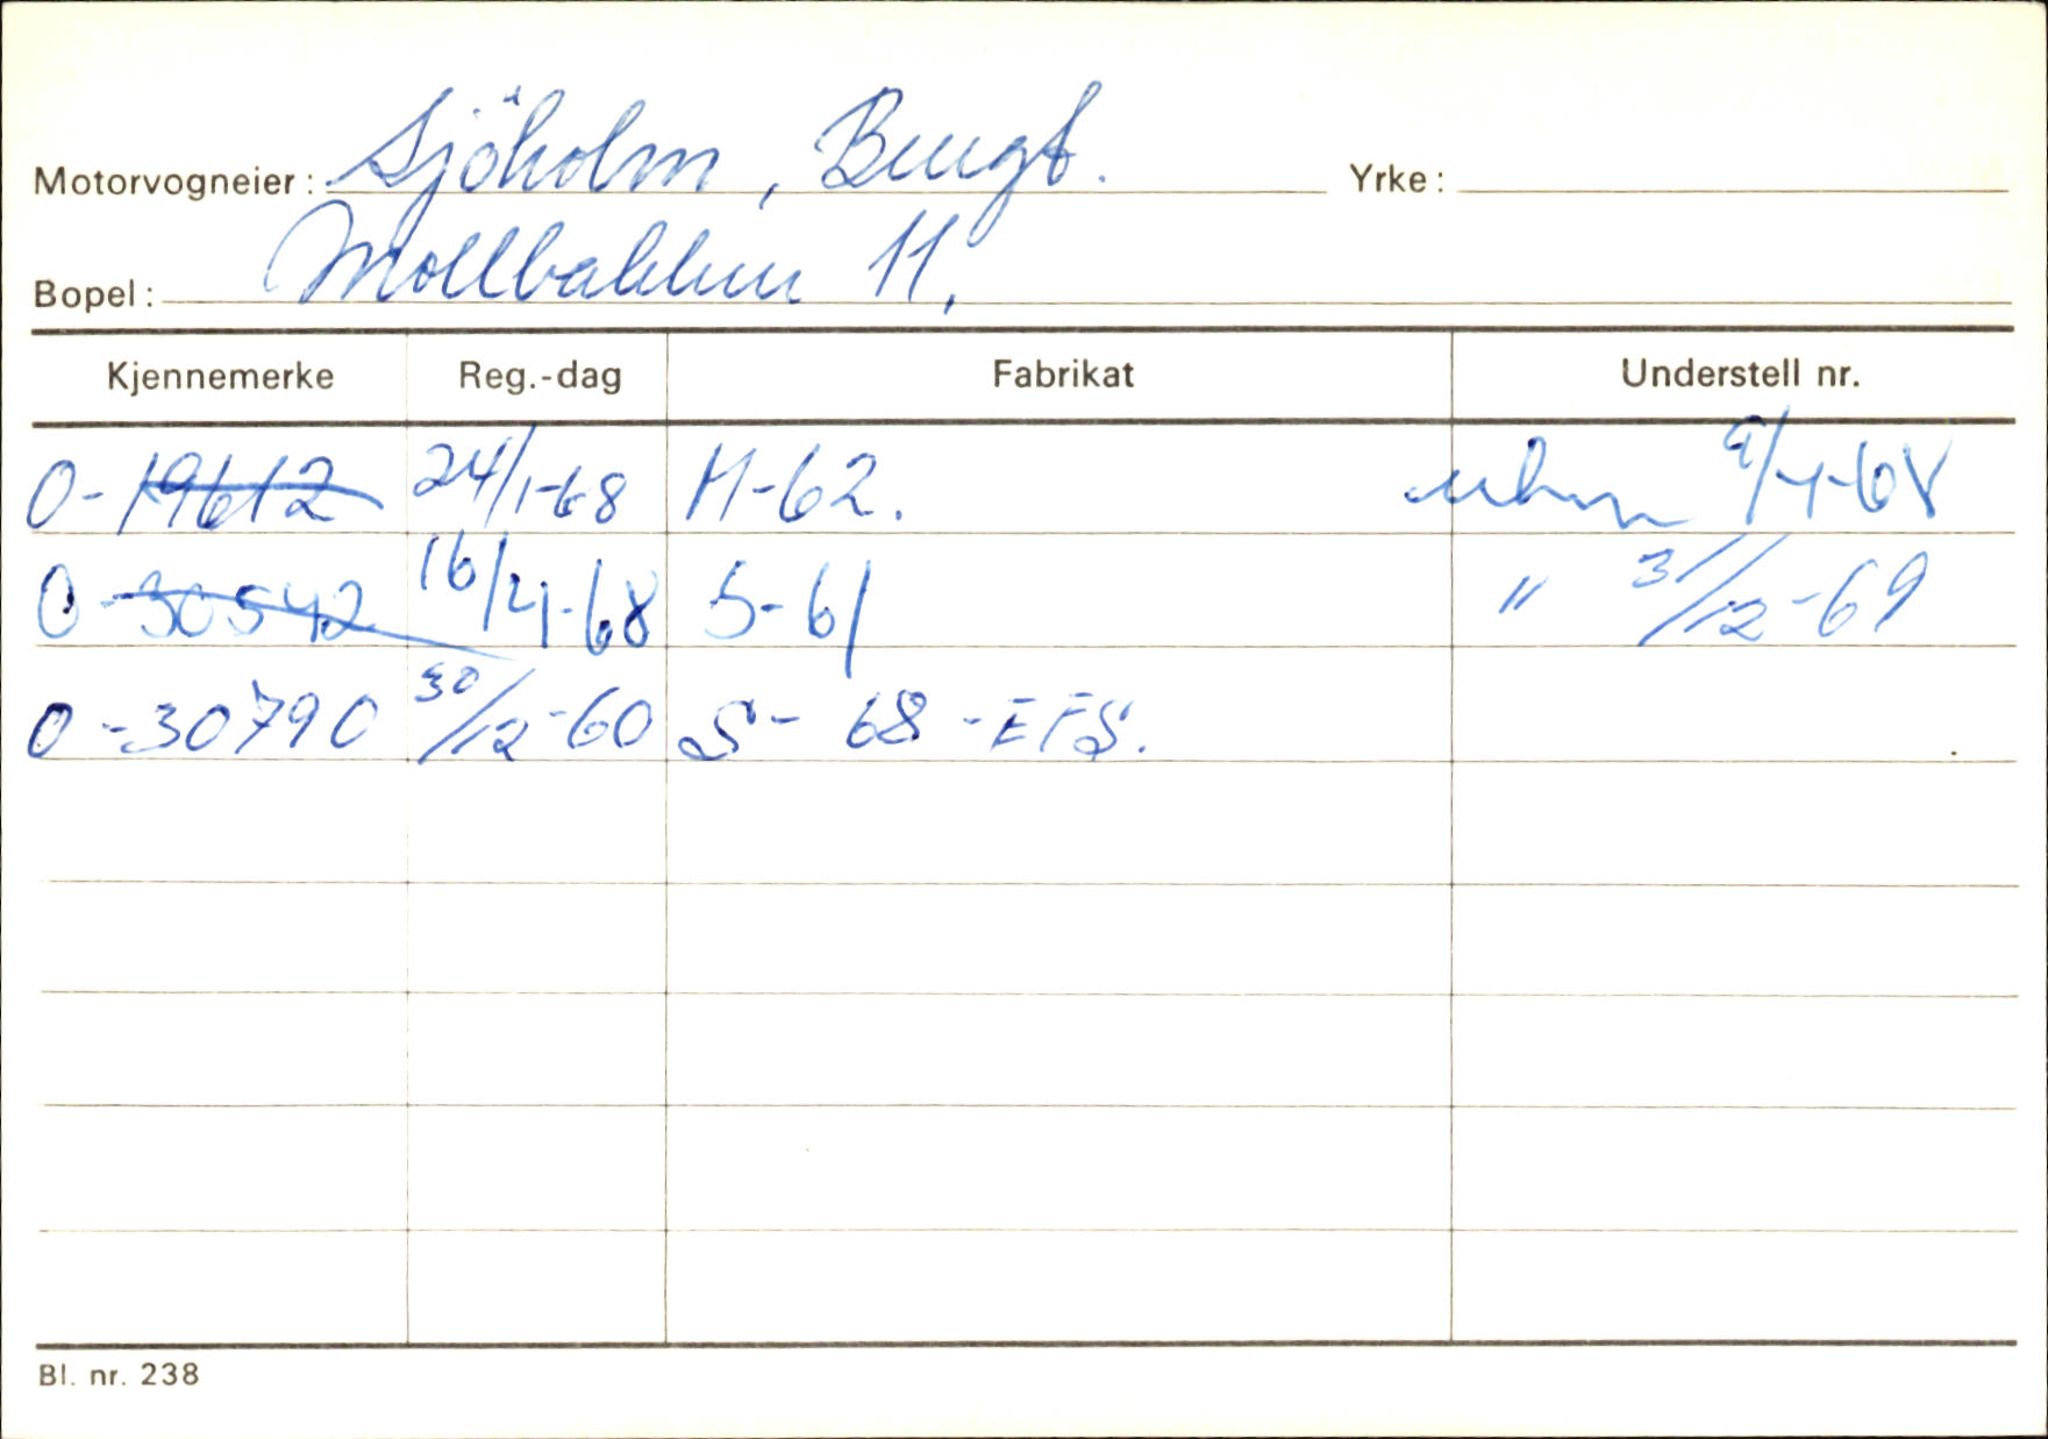 Motorvogneier: Sjöholm, Bengt. Yrke:
Bopel: Mollbakken 11.
Kjennemerke Reg.-dag Fabrikat Understell nr.
O-19612 24/1-68 M-62. 9/4-68
O-30542 16/4-68 S-61 " 3/12-69
O-30790 30/12-60 S-68-EFS.
Bl. nr. 238